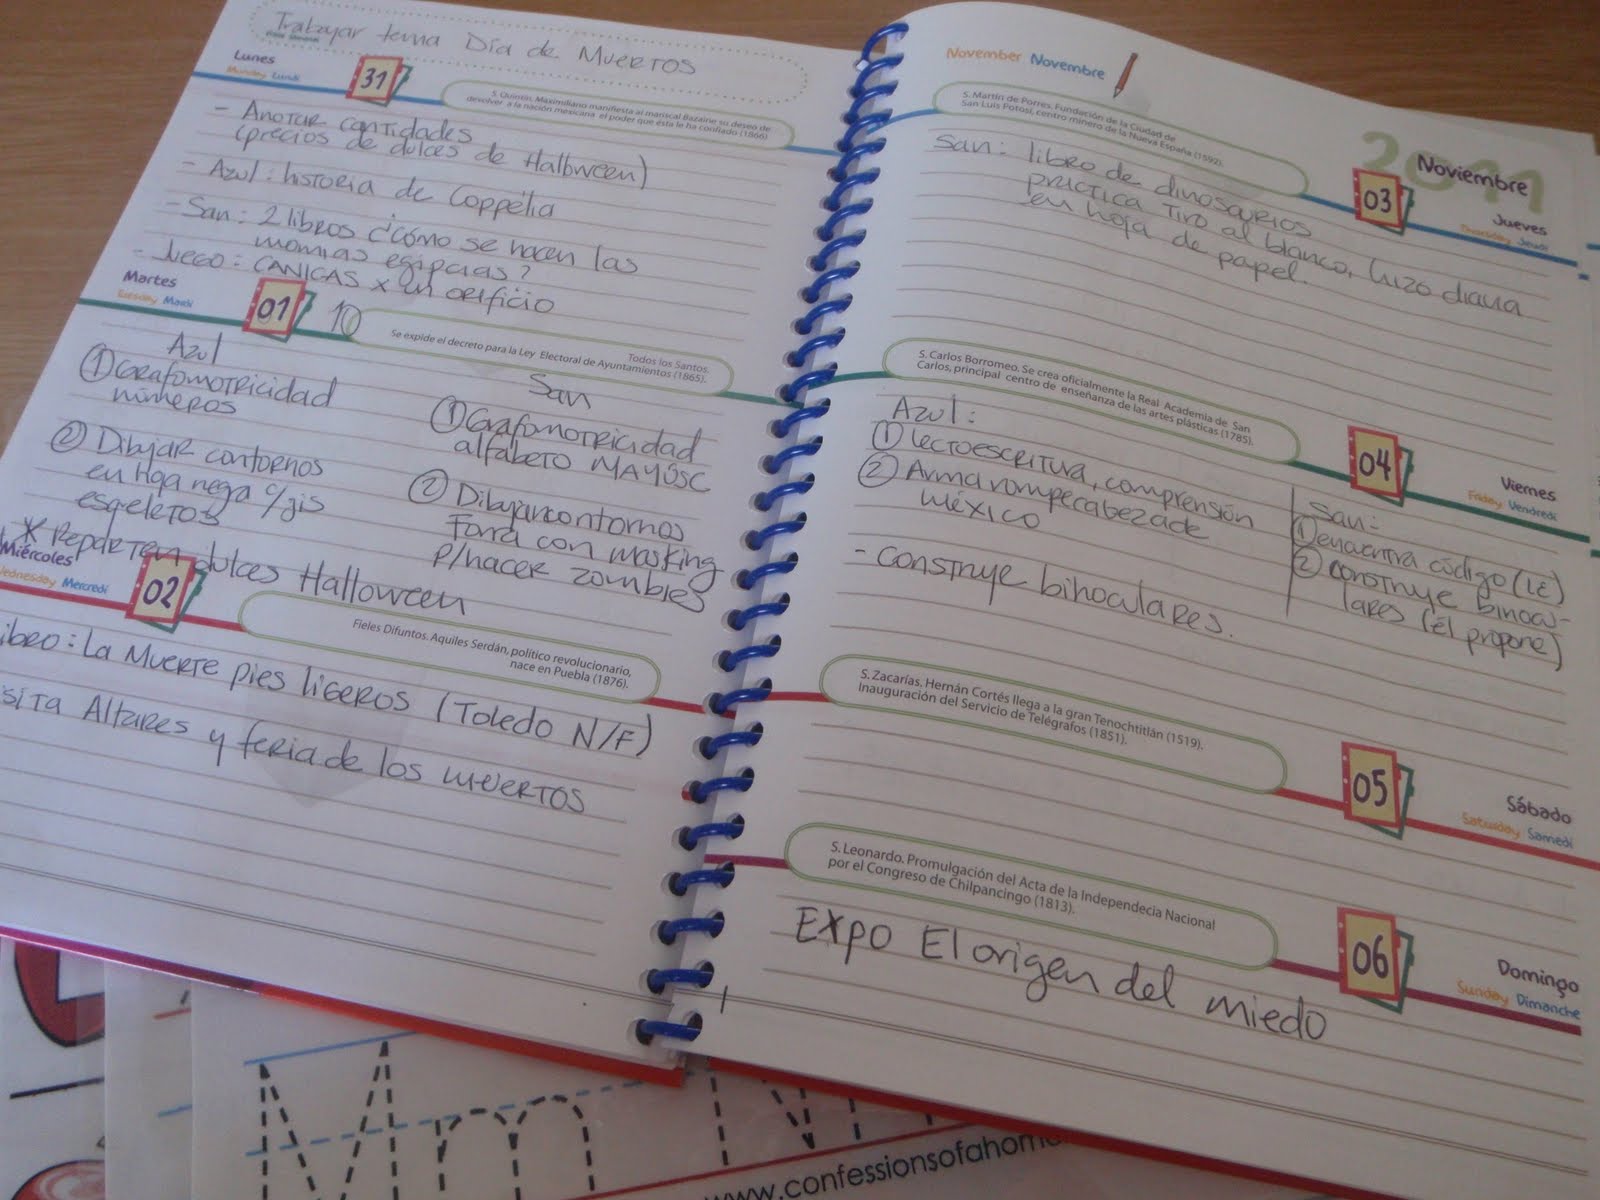 Trabajar tema Día de Muertos
Lunes
Monday Lundi
31
S. Quintín. Maximiliano manifiesta al mariscal Bazaine su deseo de
devolver a la nación mexicana el poder que ésta le ha confiado (1866)
- Anotar cantidades
(precios de dulces de Halloween)
- Azul: historia de Coppélia
- San: 2 libros ¿cómo se hacen las
momias egipcias?
- Juego: CANICAS x un orificio
Martes
Tuesday Mardi
01
10
Todos los Santos.
Se expide el decreto para la Ley Electoral de Ayuntamientos (1865).
Azul
① Grafomotricidad
números
② Dibujar contornos
en hoja negra c/gis
esqueletos
San
① Grafomotricidad
alfabeto MAYÚSC
② Dibujar contornos
Forra con masking
p/hacer zombies
* Reparten dulces Halloween
Miércoles
Wednesday Mercredi
02
Fieles Difuntos. Aquiles Serdán, político revolucionario,
nace en Puebla (1876).
ibro: La Muerte pies ligeros (Toledo N/F)
sita Altares y feria de los muertos
November Novembre
2011
Noviembre
S. Martín de Porres. Fundación de la Ciudad de
San Luis Potosí, centro minero de la Nueva España (1592).
03
Jueves
Thursday Jeudi
San: libro de dinosaurios
practica tiro al blanco, hizo diana
en hoja de papel.
S. Carlos Borromeo. Se crea oficialmente la Real Academia de San
Carlos, principal centro de enseñanza de las artes plásticas (1785).
04
Viernes
Friday Vendredi
Azul:
① Lectoescritura, comprensión
② Arma rompecabezas de
México
- Construye binoculares.
San:
① encuentra código (LE)
② construye binocu-
lares (él propone)
S. Zacarías. Hernán Cortés llega a la gran Tenochtitlán (1519).
Inauguración del Servicio de Telégrafos (1851).
05
Sábado
Saturday Samedi
S. Leonardo. Promulgación del Acta de la Independecia Nacional
por el Congreso de Chilpancingo (1813).
06
Domingo
Sunday Dimanche
Expo El origen del miedo
M m
www.confessionsofahom